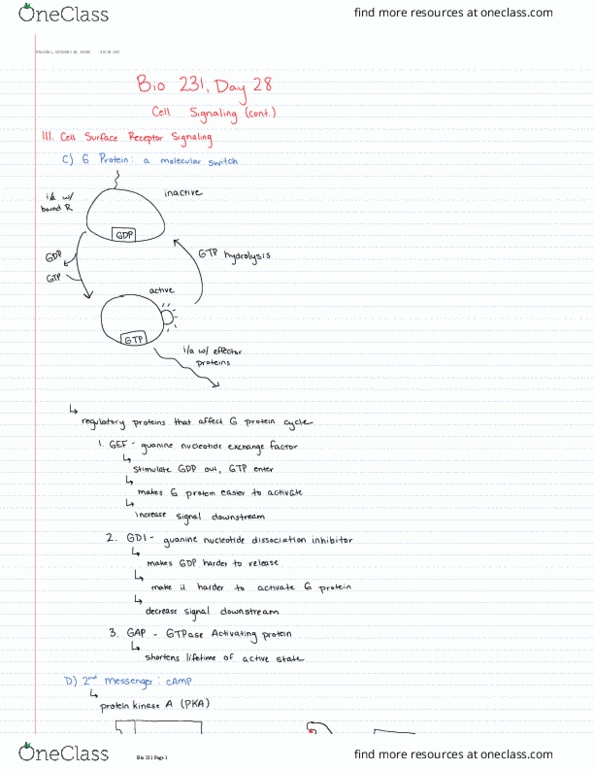 OneClass
find more resources at oneclass.com
Bio 231, Day 28
Cell Signaling (cont.)
III. Cell Surface Receptor Signaling
C) G Protein: a molecular switch
i/a w/ bound R
inactive
GDP
GDP
GTP
GTP hydrolysis
active
GTP
i/a w/ effector proteins
↳ regulatory proteins that affect G protein cycle
1. GEF - guanine nucleotide exchange factor
↳ stimulate GDP out, GTP enter
↳ makes G protein easier to activate
↳ increase signal downstream
2. GDI - guanine nucleotide dissociation inhibitor
↳ makes GDP harder to release
↳ make it harder to activate G protein
↳ decrease signal downstream
3. GAP - GTPase Activating protein
↳ shortens lifetime of active state
D) 2nd messenger: cAMP
↳ protein kinase A (PKA)
OneClass
Bio 231 Page 1
find more resources at oneclass.com